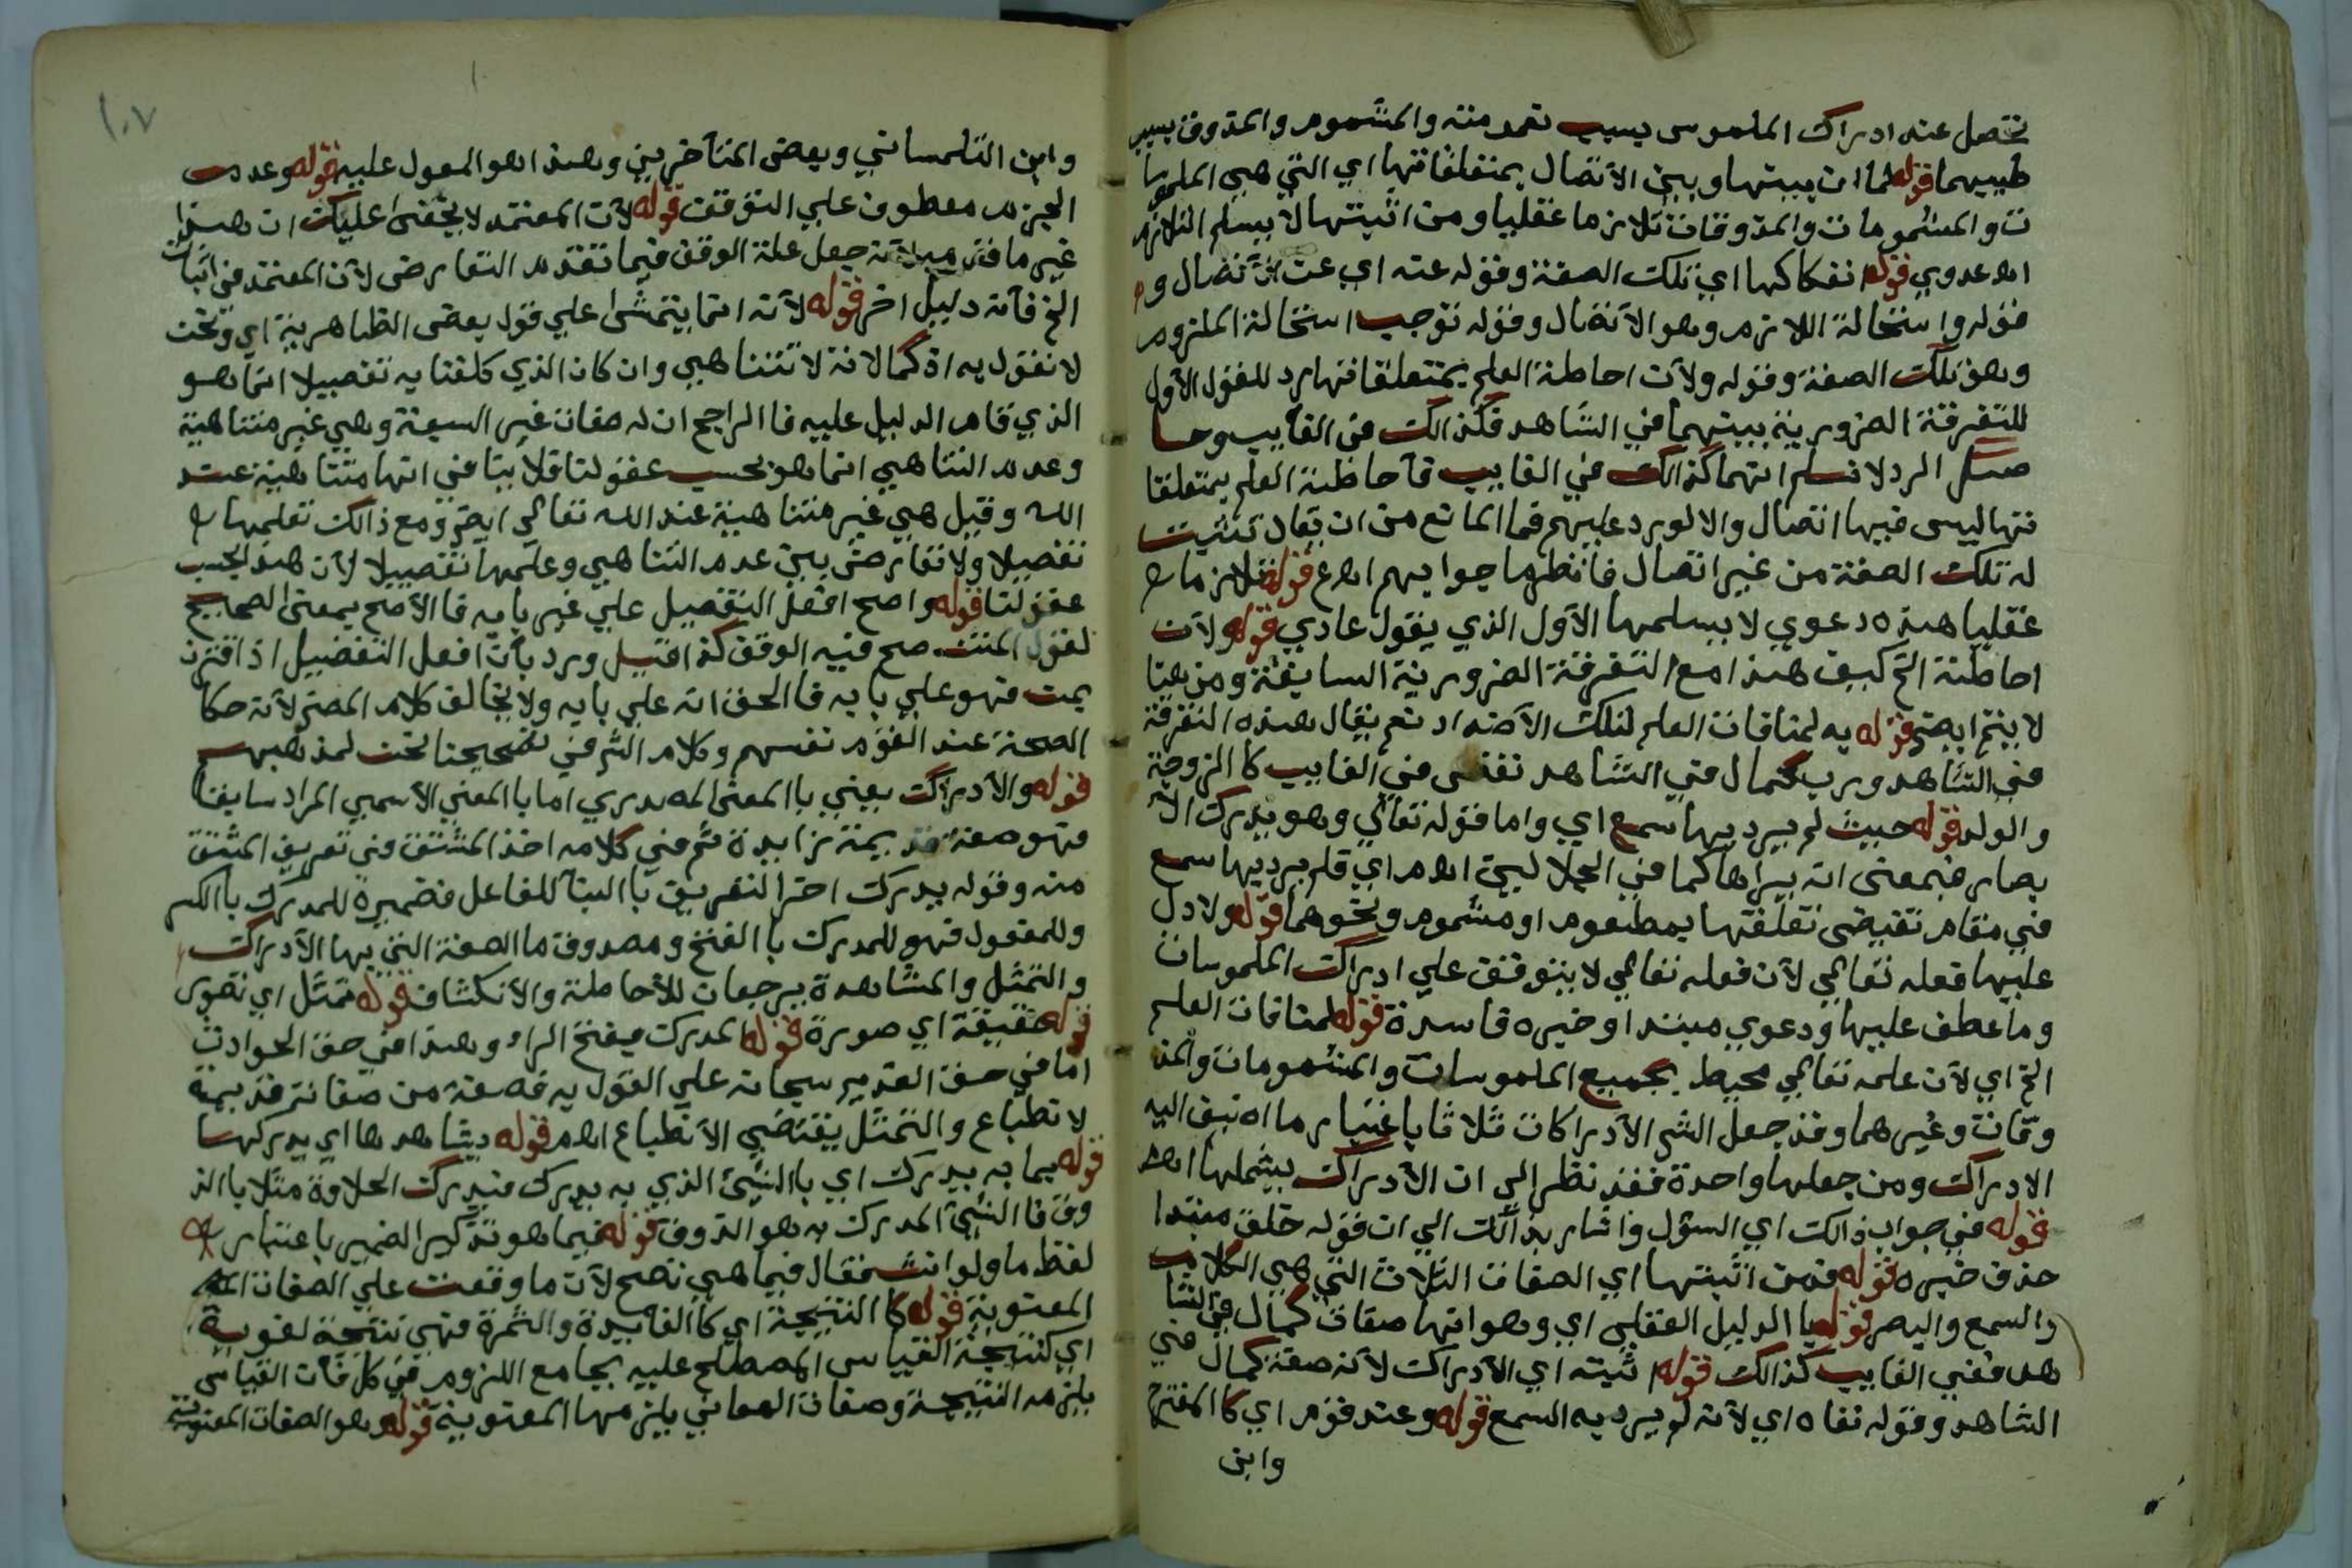 تحصل عنه ادراك الملموس بسبب نعومته والمشموم والمذوق بسبب
طيبهما قوله لما ان بينها وبين الاتصال بمتعلقاتها اي التي هي الملموسا
ت والمشمومات والمذوقات تلازما عقليا ومن اثبتها لا يسلم التلازم
اه عدوي قوله انفكاكها اي تلك الصفة وقوله عنه اي عن الاتصال و
قوله واستحالة اللازم وهو الاتصال وقوله توجب استحالة الملزوم
وهو تلك الصفة وقوله ولان احاطة العلم بمتعلقاتها رد للقول الاول
للتفرقة الضرورية بينهما في الشاهد فكذالك في الغايب وحا
صل الرد لا نسلم انهما كذالك في الغايب فاحاطة العلم بمتعلقا
تها ليس فيها اتصال والا لورد عليهم فما المانع من ان يقال تثبت
له تلك الصفة من غير اتصال فانظر ما جوابهم اه ع قوله تلازما
عقليا هذه دعوي لا يسلمها الاول الذي يقول عادي قوله ولان
احاطة الخ كيف هذا مع التفرقة الضرورية السابقة ومن هنا
لا ينتج ايضا قوله به لمنافات العلم لتلك الاضداد نعم يقال هذه التفرقة
في الشاهد ورب كمال في الشاهد نقص في الغايب كالزوجة
والولد قوله حيث لم يرد بها سمع اي واما قوله تعالي وهو يدرك الا
بصار فبمعني انه يراها كما في الجلالين اه م اي فلم يرد بها سمع
في مقام تقيضي تعلقها بمطعوم او مشموم ونحوهما قوله ولا دل
عليها فعله تعالي لان فعله تعالي لا يتوقف علي ادراك الملموسات
وما عطف عليها ودعوي مبتدا وخبره فاسدة قوله لمنافات العلم
الخ اي لان علمه تعالي محيط بجميع الملموسات والمشمومات والمذ
وقات وغيرهما وقد جعل الشر الادراكات ثلاثا باعتبار ما اضيف اليه
الادراك ومن جعلها واحدة فقد نظر الي ان الادراك يشملها اه
قوله في جواب ذالك اي السؤل واشار بذالك الي ان قوله خلق مبتدا
حذف خبره قوله فمن اثبتها اي الصفات الثلاث التي هي الكلام
والسمع والبصر قوله بالدليل العقلي اي وهو انها صفات كمال في الشا
هد ففي الغايب كذالك قوله اثبته اي الادراك لانه صفة كمال في
الشاهد وقوله نفاه اي لانه لم يرد به السمع قوله وعند قوم اي كالمقترح
وابن
١٠٧
وابن التلمساني وبعض المتاخرين وهذا هو المعول عليه قوله وعدم
الجزم معطوف علي التوقف قوله لان المعتمد لا يخفي عليك ان هذا
غير ما قدمه لانه جعل علة الوقف فيما تقدم التعارض لان المعتمد في اثبات
الخ فانه دليل اخر قوله لانه انما يتمشي علي قول بعض الظاهرية اي ونحن
لا نقول به اذ كمالاته لا تتناهي وان كان الذي كلفنا به تفصيلا انما هو
الذي قام الدليل عليه فالراجح ان له صفات غير السبعة وهي غير متناهية
وعدم التناهي انما هو بحسب عقولنا فلا ينافي انها متناهية عند
الله وقيل هي غير متناهية عند الله تعالي ايضا ومع ذالك تعلمها
تفصيلا ولا تعارض بين عدم التناهي وعلمها تفصيلا لان هذا بحسب
عقولنا قوله واصح افعل التفصيل علي غير بابه فالاصح بمعني الصحيح
لقول المتن صح فيه الوقف كذا قيل ورد بان افعل التفضيل اذا اقترن
بمن فهو علي بابه فالحق انه علي بابه ولا يخالف كلام المصنف لانه حكا
الصحة عند القوم نفسهم وكلام الشر في تصحيحنا نحن لمذهبهم
قوله والادراك يعني بالمعني المصدري اما بالمعني الاسمي المراد سابقا
فهو صفة قديمة زايدة ثم في كلامه اخذ المشتق في تعريف المشتق
منه وقوله يدرك اخر التعريف بالبنا للفاعل فضميره للمدرك بالكسر
وللمفعول فهو للمدرك بالفتح ومصدوق ما الصفة التي بها الادراك
والتمثل والمشاهدة يرجعان للاحاطة والانكشاف قوله تمثل اي تصور
قوله حقيقة اي صورة قوله المدرك بفتح الراء وهذا في حق الحوادث
اما في حق القديم سبحانه علي القول به فصفة من صفاته قديمة
لا تطباع والتمثل يقتضي الانطباع اه م قوله يشاهدها اي يدركها
قوله بما به يدرك اي بالشيئ الذي به يدرك فيدرك الحلاوة مثلا بالذ
وق فالشيئ المدرك به هو الذوق قوله فيما هو تذكير الضمير باعتبار
لفظ ما ولو انث فقال فيما هي نصح لان ما وقعت علي الصفات
المعنوية قوله كالنتيجة اي كالفايدة والثمرة فهي نتيجة لغوية
اي كنتيجة القياس المصطلح عليه بجامع اللزوم في كل فان القياس
يلزمه النتيجة وصفات المعاني يلزمها المعنوية قوله وهو الصفات المعنوية